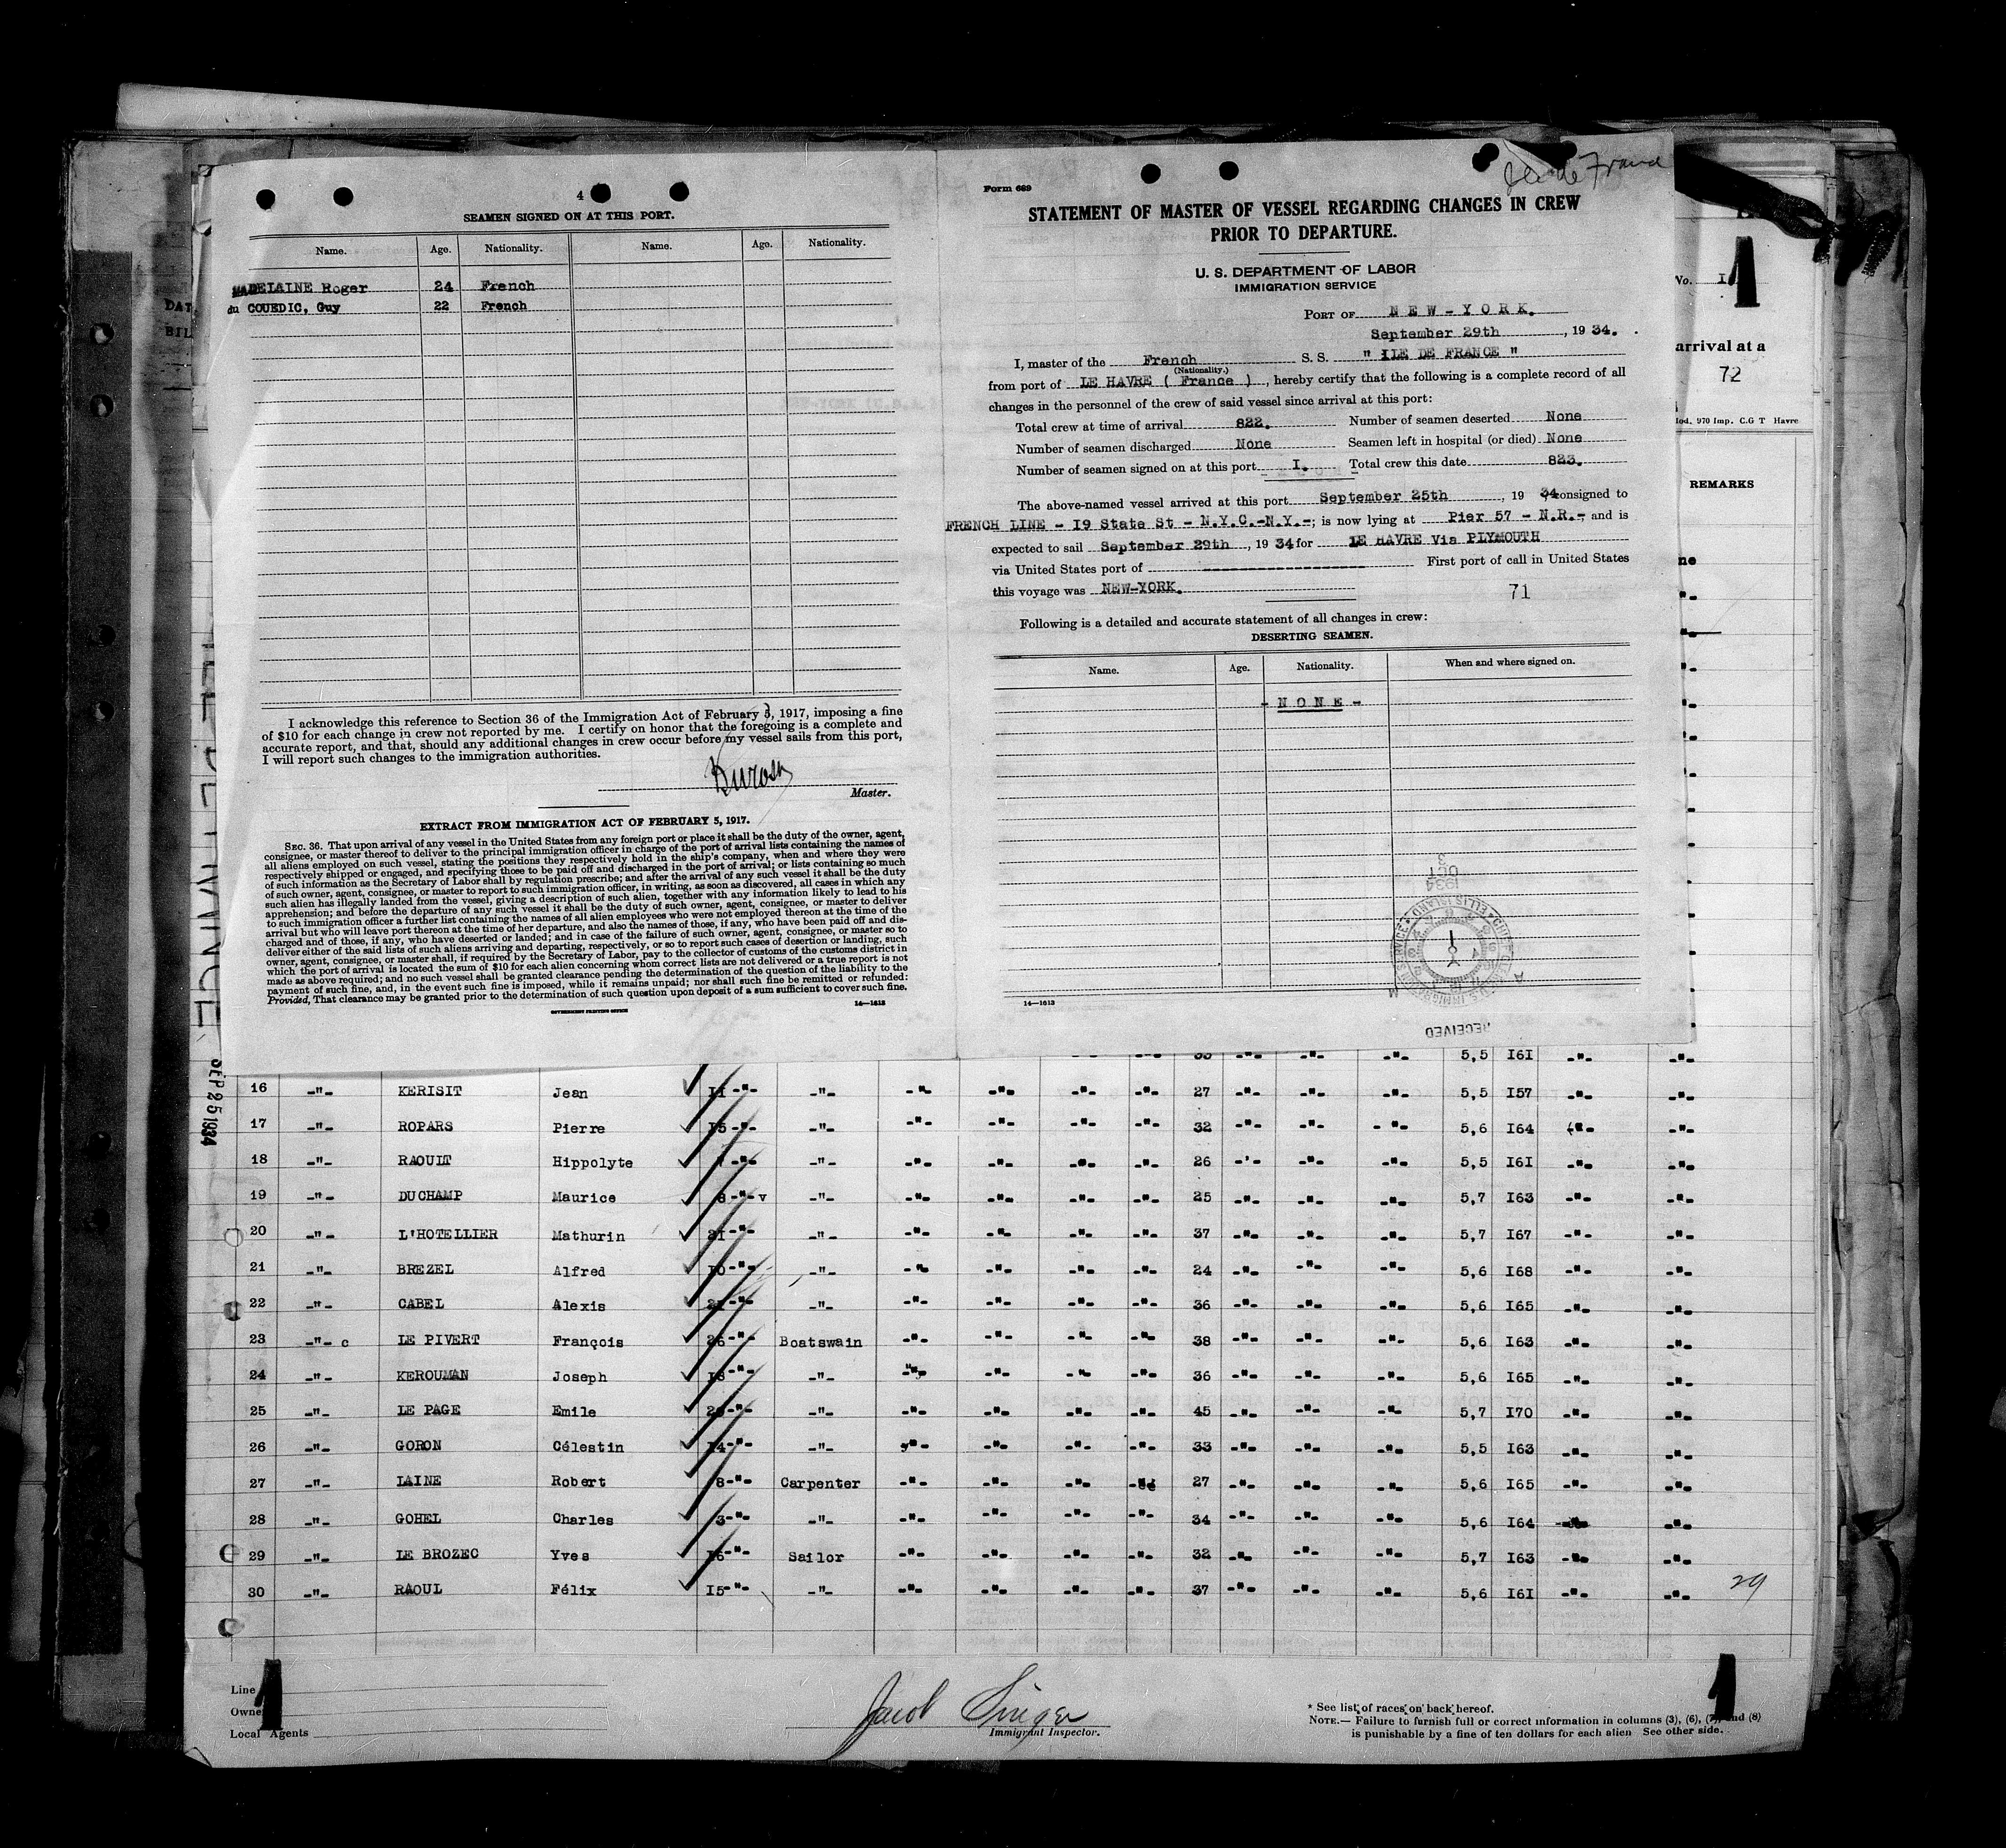 4
SEAMEN SIGNED ON AT THIS PORT.
Name. Age. Nationality. Name. Age. Nationality.
MADELAINE Roger 24 French
du COUEDIC, Guy 22 French
I acknowledge this reference to Section 36 of the Immigration Act of February 5, 1917, imposing a fine
of $10 for each change in crew not reported by me. I certify on honor that the foregoing is a complete and
accurate report, and that, should any additional changes in crew occur before my vessel sails from this port,
I will report such changes to the immigration authorities.
Master.
EXTRACT FROM IMMIGRATION ACT OF FEBRUARY 5, 1917.
SEC. 36. That upon arrival of any vessel in the United States from any foreign port or place it shall be the duty of the owner, agent,
consignee, or master thereof to deliver to the principal immigration officer in charge of the port of arrival lists containing the names of
all aliens employed on such vessel, stating the positions they respectively hold in the ship's company, when and where they were
respectively shipped or engaged, and specifying those to be paid off and discharged in the port of arrival; or lists containing so much
of such information as the Secretary of Labor shall by regulation prescribe; and after the arrival of any such vessel it shall be the duty
of such owner, agent, consignee, or master to report to such immigration officer, in writing, as soon as discovered, all cases in which any
such alien has illegally landed from the vessel, giving a description of such alien, together with any information likely to lead to his
apprehension; and before the departure of any such vessel it shall be the duty of such owner, agent, consignee, or master to deliver
to such immigration officer a further list containing the names of all alien employees who were not employed thereon at the time of the
arrival but who will leave port thereon at the time of her departure, and also the names of those, if any, who have been paid off and dis-
charged and of those, if any, who have deserted or landed; and in case of the failure of such owner, agent, consignee, or master so to
deliver either of the said lists of such aliens arriving and departing, respectively, or so to report such cases of desertion or landing, such
owner, agent, consignee, or master shall, if required by the Secretary of Labor, pay to the collector of customs of the customs district in
which the port of arrival is located the sum of $10 for each alien concerning whom correct lists are not delivered or a true report is not
made as above required; and no such vessel shall be granted clearance pending the determination of the question of the liability to the
payment of such fine, and, in the event such fine is imposed, while it remains unpaid; nor shall such fine be remitted or refunded:
Provided, That clearance may be granted prior to the determination of such question upon deposit of a sum sufficient to cover such fine.
14—1613
GOVERNMENT PRINTING OFFICE
Ile de France
Form 689
STATEMENT OF MASTER OF VESSEL REGARDING CHANGES IN CREW
PRIOR TO DEPARTURE.
U. S. DEPARTMENT OF LABOR
IMMIGRATION SERVICE
PORT OF NEW-YORK.
September 29th, 1934.
I, master of the French S. S. " ILE DE FRANCE "
(Nationality.)
from port of LE HAVRE ( France ), hereby certify that the following is a complete record of all
changes in the personnel of the crew of said vessel since arrival at this port:
Total crew at time of arrival 822. Number of seamen deserted None
Number of seamen discharged None Seamen left in hospital (or died) None
Number of seamen signed on at this port I. Total crew this date 823.
The above-named vessel arrived at this port September 25th, 1934, consigned to
FRENCH LINE - I9 State St - N.Y.C.-N.Y.-; is now lying at Pier 57 - N.R.-, and is
expected to sail September 29th, 1934 for LE HAVRE Via PLYMOUTH
via United States port of ---------------- First port of call in United States
this voyage was NEW-YORK.
71
Following is a detailed and accurate statement of all changes in crew:
DESERTING SEAMEN.
Name. Age. Nationality. When and where signed on.
- NONE -
1934 OCT 3
ELLIS ISLAND
RECEIVED
14—1613
DAT
BIL
No. I
1
arrival at a
72
Mod. 970 Imp. C.G T Havre
REMARKS
ne
SEP 25 1934
35 -"- -"- -"- 5,5 I6I -"- -"-
16 -"- KERISIT Jean II-"- -"- -"- -"- -"- -"- 27 -"- -"- -"- 5,5 I57 -"- -"-
17 -"- ROPARS Pierre I5-"- -"- -"- -"- -"- -"- 32 -"- -"- -"- 5,6 I64 -"- -"-
18 -"- RAOULT Hippolyte -"- -"- -"- -"- -"- -"- 26 -"- -"- -"- 5,5 I6I -"- -"-
19 -"- DUCHAMP Maurice 8-"- v -"- -"- -"- -"- -"- 25 -"- -"- -"- 5,7 I63 -"- -"-
20 -"- L'HOTELLIER Mathurin 2I-"- -"- -"- -"- -"- -"- 37 -"- -"- -"- 5,7 I67 -"- -"-
21 -"- BREZEL Alfred I0-"- -"- -"- -"- -"- -"- 24 -"- -"- -"- 5,6 I68 -"- -"-
22 -"- CABEL Alexis 2I-"- -"- -"- -"- -"- -"- 36 -"- -"- -"- 5,6 I65 -"- -"-
23 -"- c LE PIVERT François 26-"- Boatswain -"- -"- -"- -"- 38 -"- -"- -"- 5,6 I63 -"- -"-
24 -"- KEROUMAN Joseph I8-"- -"- -"- -"- -"- -"- 36 -"- -"- -"- 5,6 I65 -"- -"-
25 -"- LE PAGE Emile 29-"- -"- -"- -"- -"- -"- 45 -"- -"- -"- 5,7 I70 -"- -"-
26 -"- GORON Célestin I4-"- -"- -"- -"- -"- -"- 33 -"- -"- -"- 5,5 I63 -"- -"-
27 -"- LAINE Robert 8-"- Carpenter -"- -"- -"- -"- 27 -"- -"- -"- 5,6 I65 -"- -"-
28 -"- GOHEL Charles 3-"- -"- -"- -"- -"- -"- 34 -"- -"- -"- 5,6 I64 -"- -"-
29 -"- LE BROZEC Yves I6-"- Sailor -"- -"- -"- -"- 32 -"- -"- -"- 5,7 I63 -"- -"-
30 -"- RAOUL Félix I5-"- -"- -"- -"- -"- -"- 37 -"- -"- -"- 5,6 I6I -"- -"-
29
1 1
Line
Owne
Local Agents
Jacob Singer
Immigrant Inspector.
* See list of races on back hereof.
NOTE.— Failure to furnish full or correct information in columns (3), (6), (7), and (8)
is punishable by a fine of ten dollars for each alien See other side.